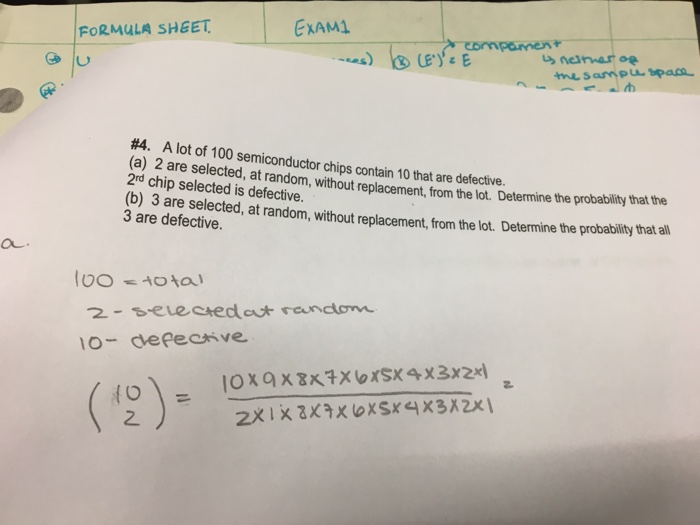 FORMULA SHEET. EXAM1
compament
U (E')' = E
↳ neither of
the sample space
#4. A lot of 100 semiconductor chips contain 10 that are defective.
(a) 2 are selected, at random, without replacement, from the lot. Determine the probability that the
2rd chip selected is defective.
(b) 3 are selected, at random, without replacement, from the lot. Determine the probability that all
3 are defective.
a.
100 = total
2 - selected at random
10 - defective
(10 2) = 10x9x8x7x6x5x4x3x2x1 =
2x1x8x7x6x5x4x3x2x1